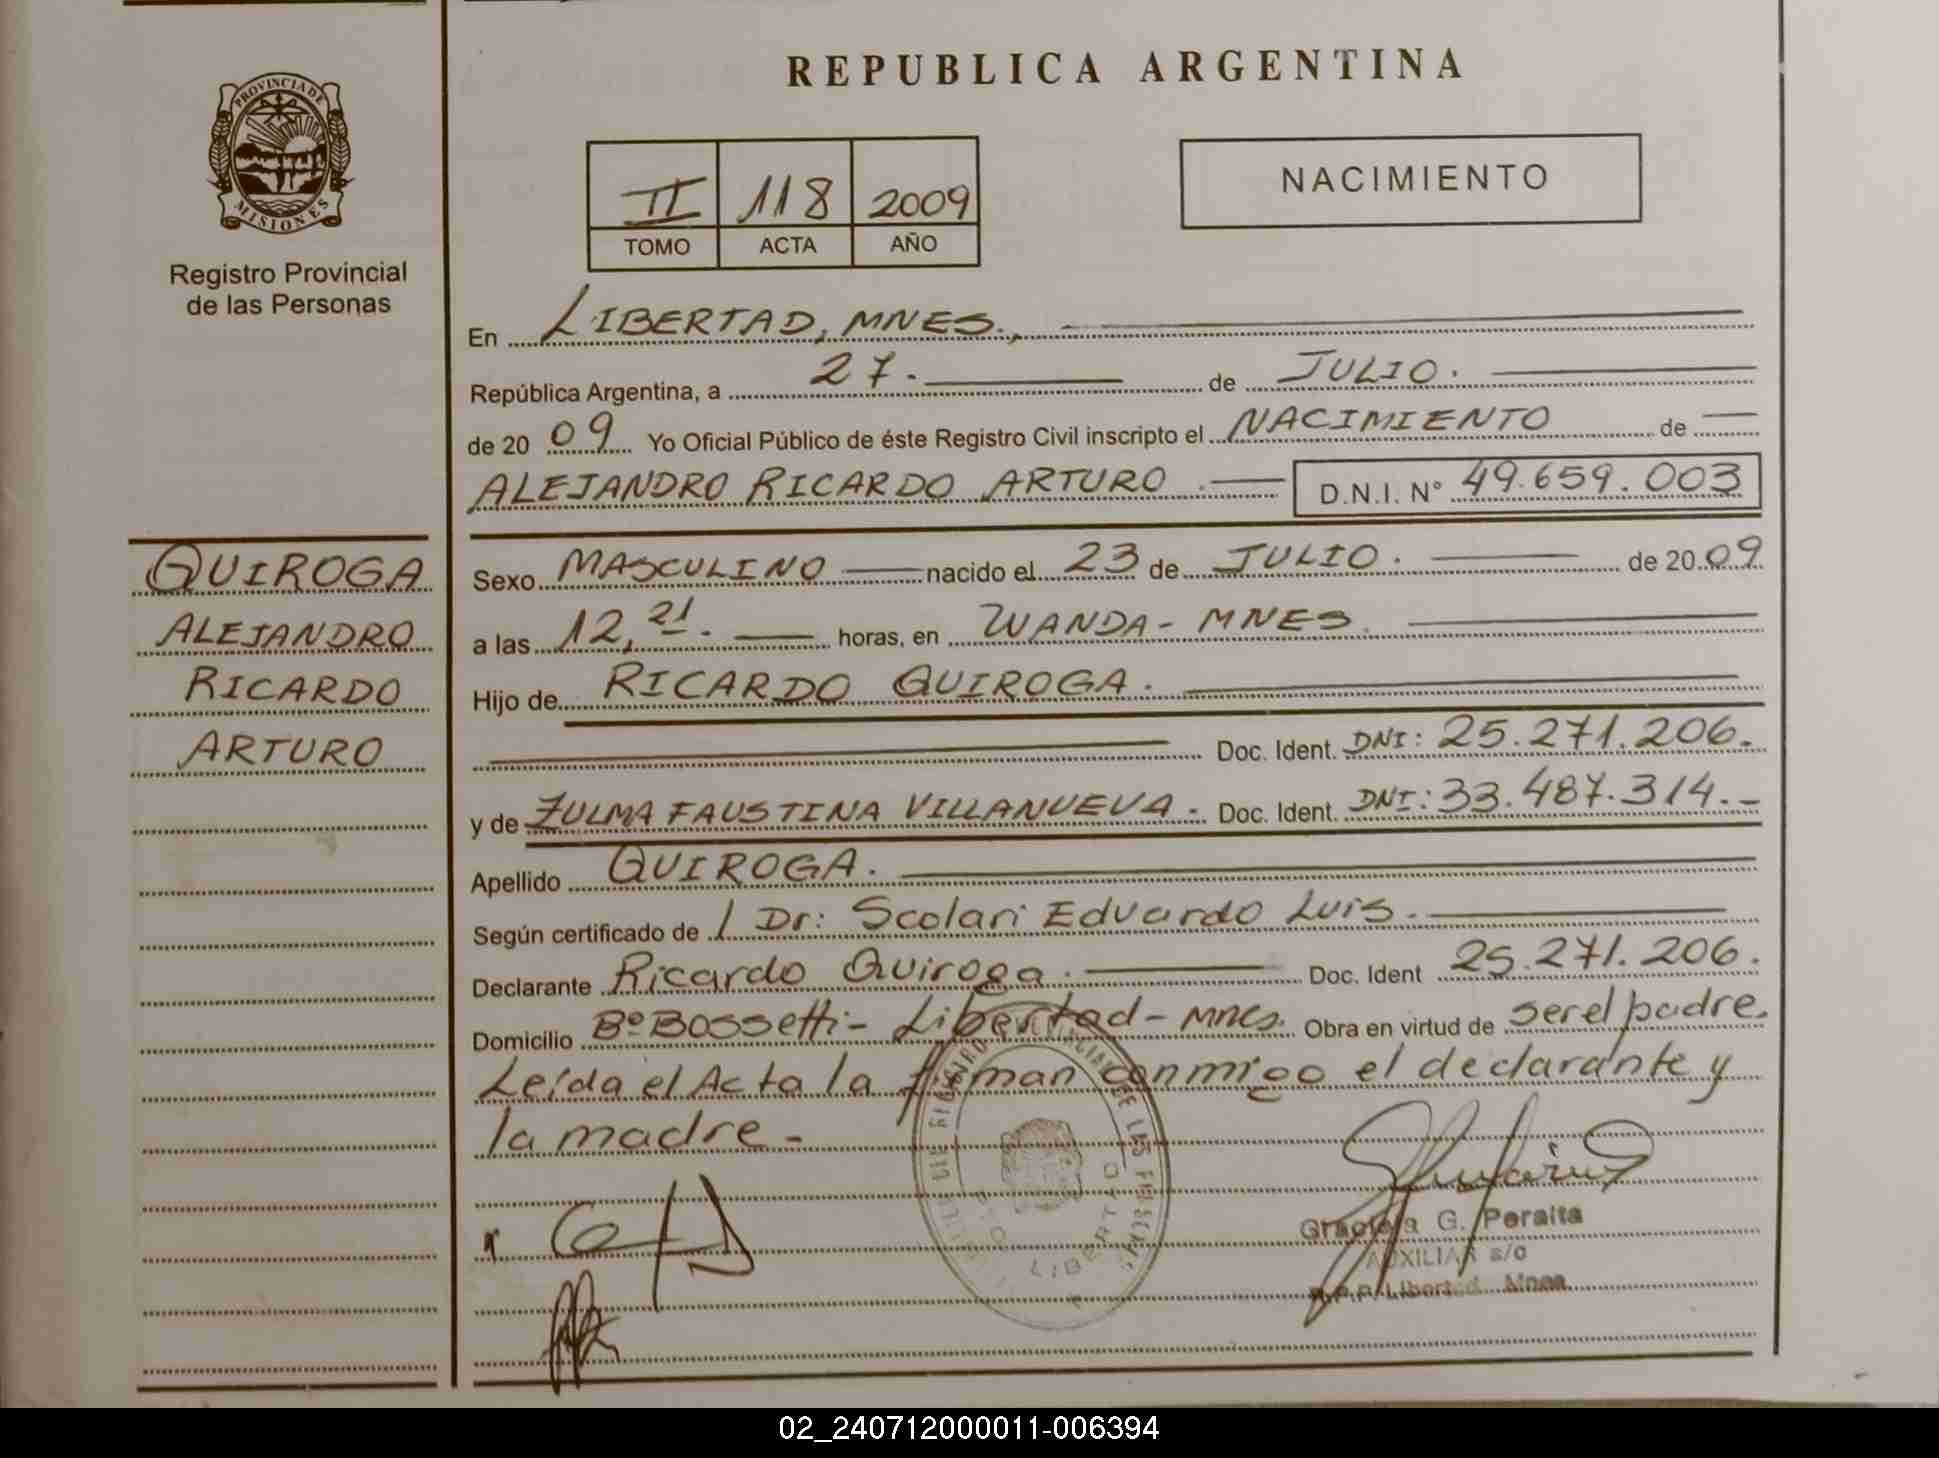 REPUBLICA ARGENTINA
PROVINCIA DE
MISIONES
Registro Provincial
de las Personas
II 118 2009
TOMO ACTA AÑO
NACIMIENTO
En LIBERTAD, MNES.,
República Argentina, a 27. de JULIO.
de 20 09 Yo Oficial Público de éste Registro Civil inscripto el NACIMIENTO de
ALEJANDRO RICARDO ARTURO. D.N.I. Nº 49.659.003
QUIROGA
ALEJANDRO
RICARDO
ARTURO
Sexo MASCULINO nacido el 23 de JULIO. de 20 09
a las 12,21. horas, en WANDA - MNES.
Hijo de RICARDO QUIROGA.
Doc. Ident. DNI: 25.271.206.
y de ZULMA FAUSTINA VILLANUEVA. Doc. Ident. DNI: 33.487.314.-
Apellido QUIROGA.
Según certificado de / Dr: Scolari Eduardo Luis.
Declarante Ricardo Quiroga. Doc. Ident 25.271.206.
Domicilio Bº Bossetti - Libertad - Mnes. Obra en virtud de ser el padre.
Leída el Acta la firman conmigo el declarante y
la madre -
LIBERTAD
Graciela G. Peralta
AUXILIAR a/c
R.P.P. Libertad Mnes
02_240712000011-006394